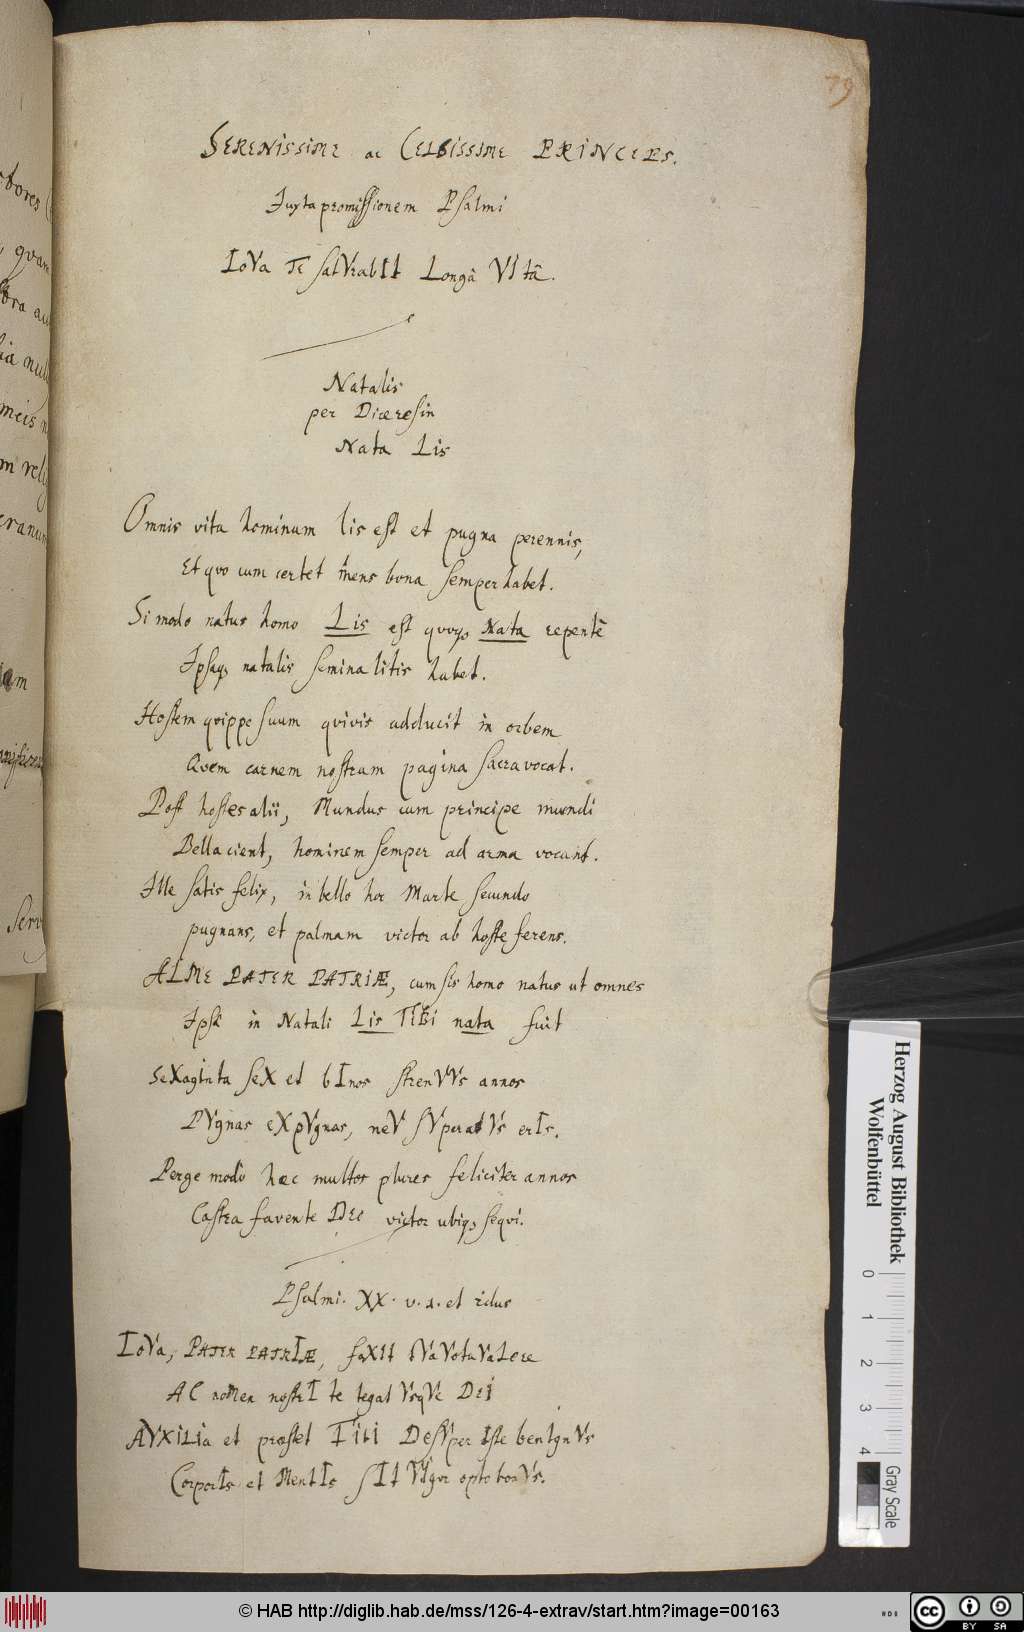 79
SERENISSIME ac CELSISSIME PRINCEPS.
Juxta promissionem Psalmi
IoVa Te satVrabIt Longâ VItâ.
Natalis
per Diæresin
Nata Lis
Omnis vita hominum lis est et pugna perennis,
Et quo cum certet mens bona semper habet.
Si modo natus homo Lis est quoqꝫ Nata repentè
Ipsaqꝫ natalis semina litis habet.
Hostem quippe suum quivis adducit in orbem
Quem carnem nostram pagina sacra vocat.
Post hostes alii, Mundus cum principe mundi
Bella cient, hominem semper ad arma vocant.
Ille satis felix, in bello hoc Marte secundo
pugnans, et palmam victor ab hoste ferens.
ALME PATER PATRIÆ, cum sis homo natus ut omnes
Ipsa in Natali Lis TIBi nata fuit
SeXagInta seX et bInos strenVVs annos
PVgnas eXpVgnas, neV sVperatVs erIs.
Perge modò hæc multos plures feliciter annos
Castra favente Deo victor ubiqꝫ sequi.
Psalmi. XX. v. 2. et
IoVa, PATER PATRIÆ, faXIt tVa Vota VaLere
AC noMen nostrI te tegat VsqVe DeI
AVXILIa et præstet TIbI DesVper Iste benIgnVs
CorporIs et MentIs sIt VIgor opto bonVs.
Herzog August Bibliothek
Wolfenbüttel
0 1 2 3 4
Gray Scale
© HAB http://diglib.hab.de/mss/126-4-extrav/start.htm?image=00163
cc BY SA